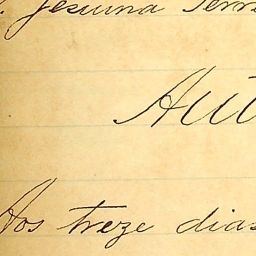 Jesuina Ferr
Aut
Aos treze dias